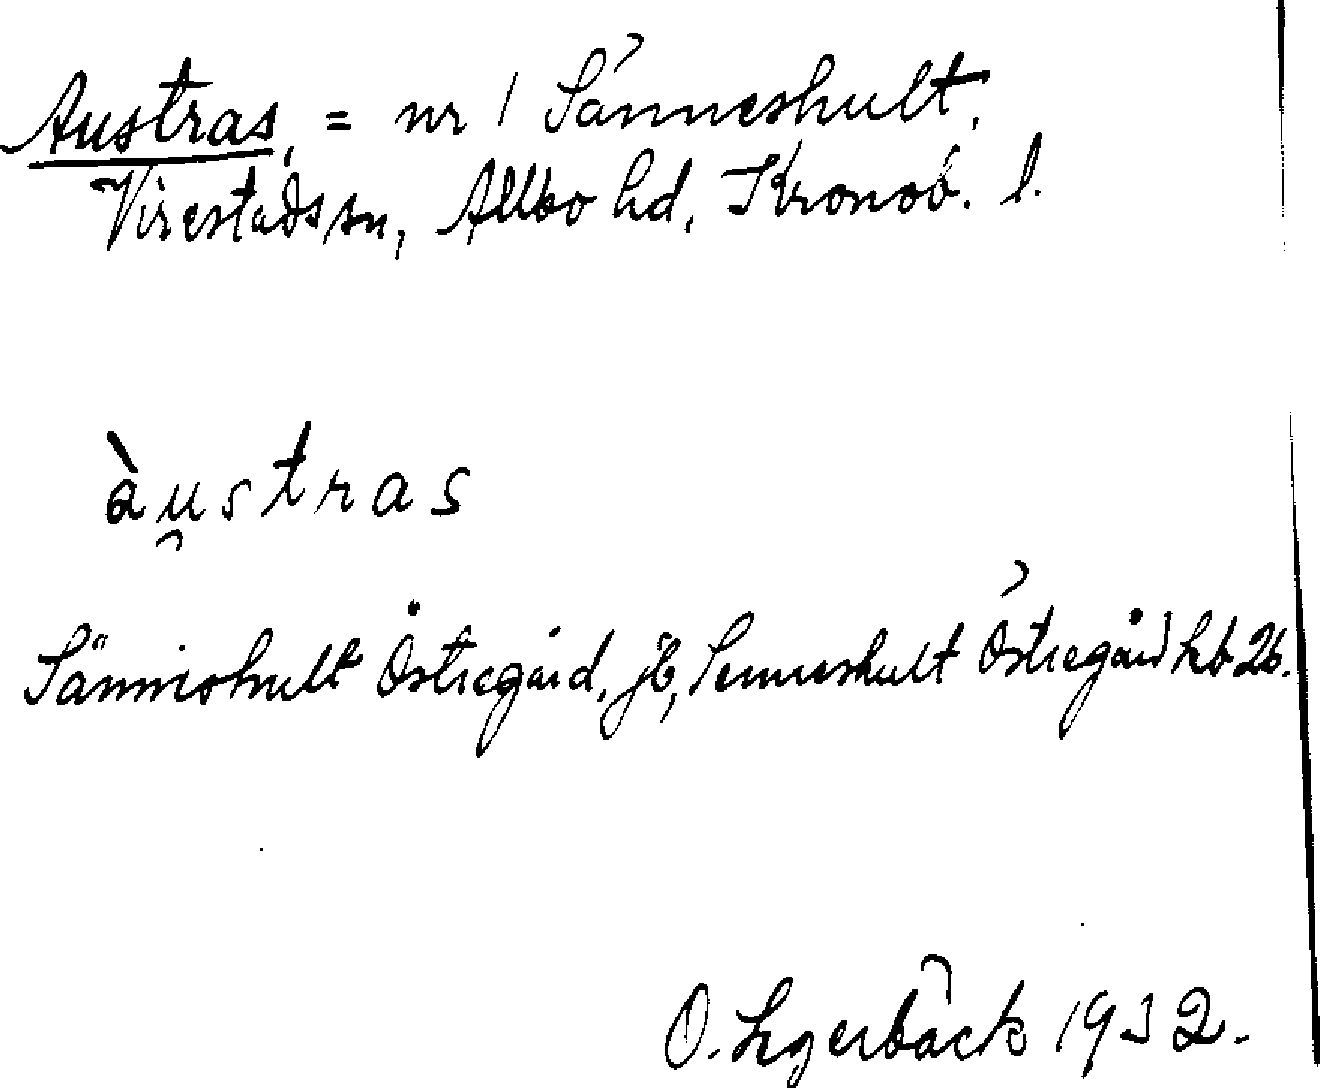 Austras, = nr 1 Sänneshult,
Virestads sn, Allbo hd, Kronob. l.
àu̯stras
Sänneshult Östregård, jb, Senneshult Östregård hb 26.
O. Lgerbäck 1932.